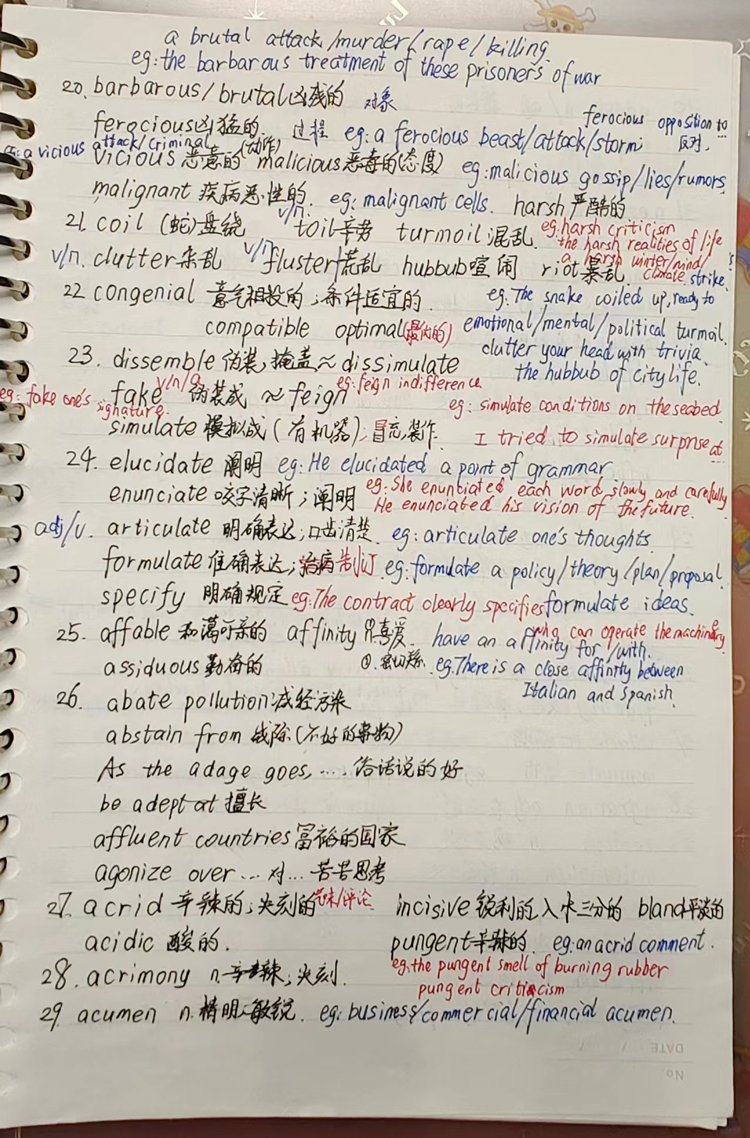 a brutal attack/murder/rape/killing
eg: the barbarous treatment of these prisoners of war
20. barbarous/brutal凶残的 对象
ferocious opposition to
ferocious凶猛的 过程 eg: a ferocious beast/attack/storm 反对.
eg: a vicious attack/criminal
vicious 恶意的(动作) malicious 恶毒的(态度) eg: malicious gossip/lies/rumors
malignant 疾病恶性的. eg: malignant cells. harsh 严酷的
21. coil (蛇)盘绕 v/n. toil辛劳 turmoil 混乱. eg: harsh criticism
the harsh realities of life
v/n. clutter杂乱 v/n fluster慌乱 hubbub喧闹 riot暴乱 a harsh winter/wind/climate strike.
22 congenial 意气相投的;条件适宜的. eg: The snake coiled up, ready to
compatible optimal(最优的) emotional/mental/political turmoil.
clutter your head with trivia.
23. dissemble 伪装,掩盖≈dissimulate the hubbub of city life.
eg: fake one's signature.
fake v/n/a 伪装成 ≈ feign eg: feign indifference
eg: simulate conditions on the seabed.
simulate 模拟成(有机器);冒充,装作. I tried to simulate surprise at
24. elucidate 阐明 eg: He elucidated a point of grammar
enunciate 咬字清晰;阐明 eg: She enuntiated each word slowly and carefully
He enunciated his vision of the future.
adj/v. articulate 明确表达;口齿清楚. eg: articulate one's thoughts.
formulate 准确表达; 制订 eg: formulate a policy/theory/plan/proposal.
specify 明确规定 eg: The contract clearly specifies formulate ideas.
who can operate the machinery
25. affable 和蔼可亲的 affinity ①.喜爱. have an affinity for/with.
assiduous 勤奋的 ②. eg. There is a close affinity between
Italian and Spanish.
26. abate pollution 减轻污染
abstain from 戒除(不好的事物)
As the adage goes, .... 俗话说的好
be adept at 擅长
affluent countries 富裕的国家
agonize over ... 对... 苦苦思考
27. acrid 辛辣的;尖刻的 气味/评论 incisive 锐利的,入木三分的 bland平淡的
acidic 酸的. pungent辛辣的. eg: an acrid comment.
28. acrimony n.辛辣;尖刻. eg: the pungent smell of burning rubber
pungent criticism
29. acumen n.精明;敏锐. eg: business/commercial/financial acumen.
DATE
No